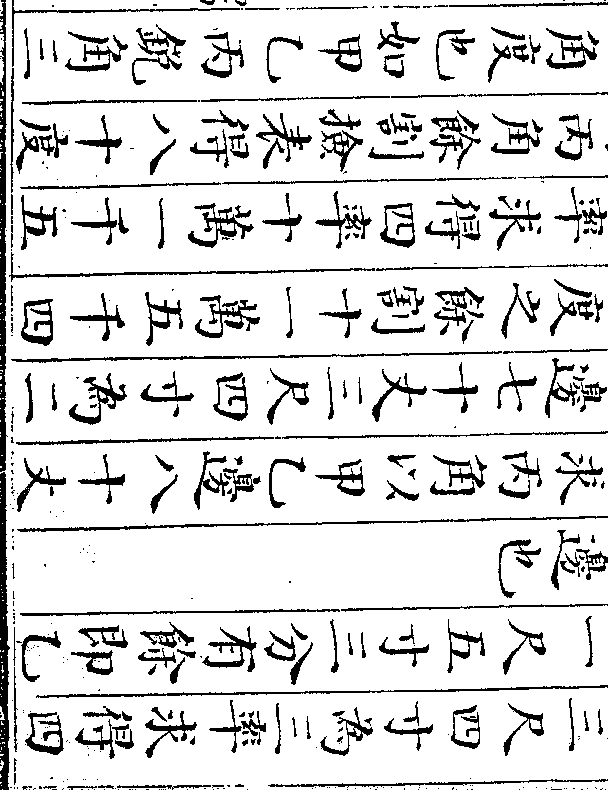 三尺四寸為三率求得四
一尺五寸三分有餘即乙
邊也
求丙角以甲乙邊八十丈
邊七十丈三尺四寸為二
度之餘割十一萬五千四
率求得四率十萬一千五
丙角餘割檢表得八十度
角度也如甲乙丙銳角三